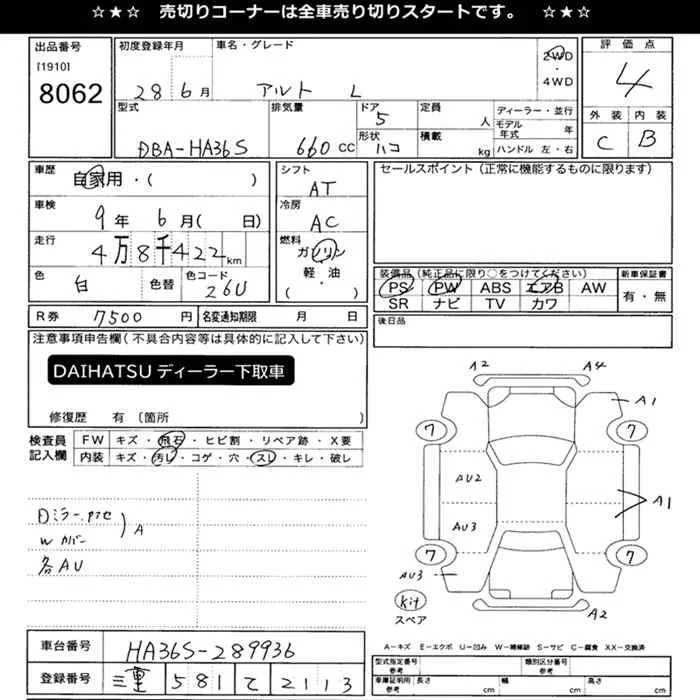 ☆★☆ 売切りコーナーは全車売り切りスタートです。 ☆★☆
出品番号
[1910]
8062
初度登録年月
28 6月
車名・グレード
アルト L
2WD
・
4WD
評価点
4
外装 内装
C B
型式
DBA-HA36S
排気量
660 CC
ドア
5
形状
ハコ
定員
人
積載
kg
ディーラー・並行
モデル年式 年
ハンドル 左・右
車歴
自家用・( )
車検
9年 6月( 日)
走行
4万8千422km
色
白
色替
色コード
26U
シフト
AT
冷房
AC
燃料
ガソリン
軽・油
・( )
セールスポイント(正常に機能するものに限ります)
装備品(純正品に限り○をつけてください)
PS PW ABS エアB AW
SR ナビ TV カワ
新車保証書
有・無
後日品
R券 7500 円
名変通知期限 月 日
注意事項申告欄(不具合内容等は具体的に記入して下さい)
DAIHATSU ディーラー下取車
修復歴 有〔箇所 〕
検査員
記入欄
FW キズ・飛石・ヒビ割・リペア跡・X要
内装 キズ・汚レ・コゲ・穴・スレ・キレ・破レ
Dミラー
W カバー
A
各AU
A2 A4
A1
7 7
AU2
A1
AU3
7 7
AU3
Kit
スペア
A2
A-キズ E-エクボ U-凹み W-補修跡 S-サビ C-腐食 XX-交換済
車台番号 HA36S-289936
登録番号 三重 581 て 2113
型式指定番号
参考
類別区分番号
参考
車庫証明用
参考
長さ cm 幅 cm 高さ cm